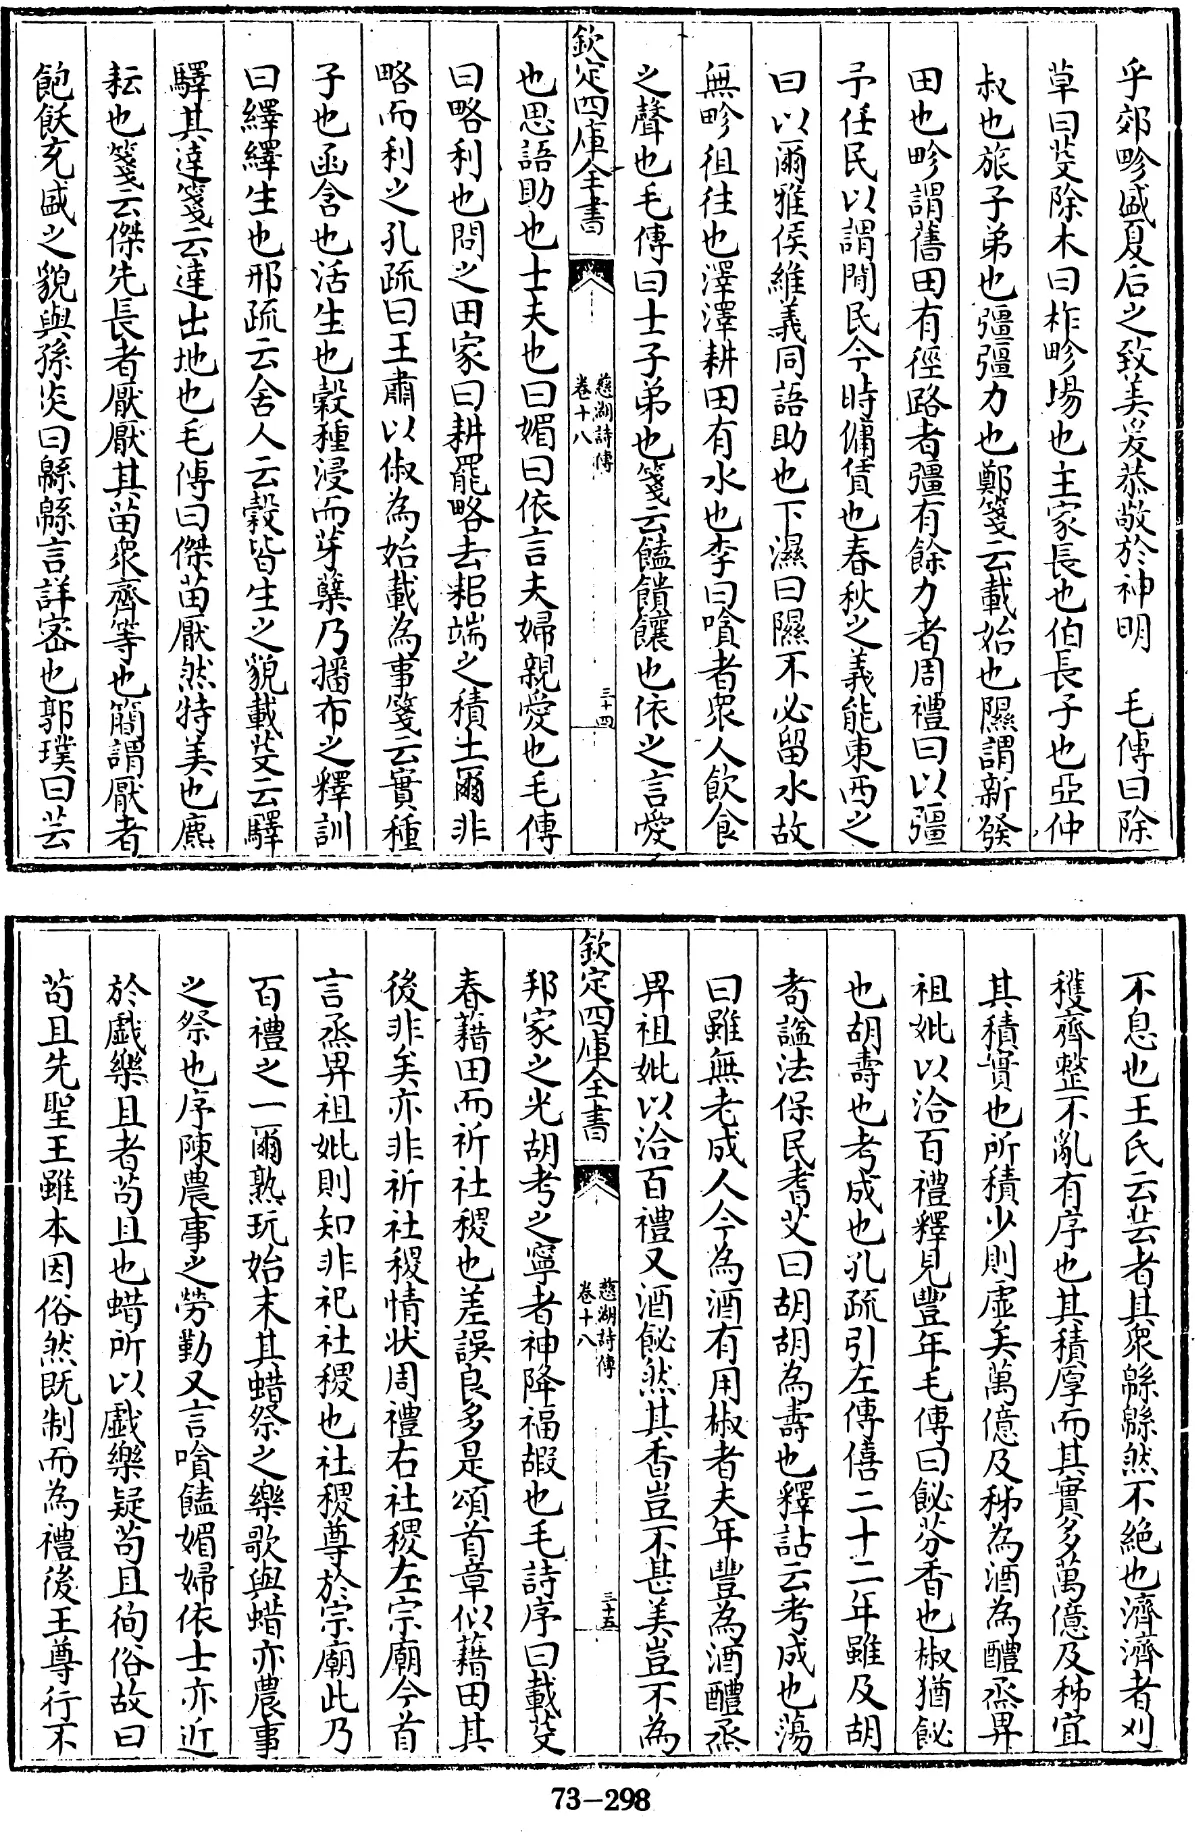 乎郊畛盛夏后之致美爰恭敬於神明　毛傳曰除
草曰芟除木曰柞畛場也主家長也伯長子也亞仲
叔也旅子弟也彊彊力也鄭箋云載始也隰謂新發
田也畛謂舊田有徑路者彊有餘力者周禮曰以彊
予任民以謂閒民今時傭賃也春秋之義能東西之
曰以爾雅侯維義同語助也下濕曰隰不必留水故
無畛徂往也澤澤耕田有水也李曰嗿者衆人飲食
之聲也毛傳曰士子弟也箋云饁饋饟也依之言愛
欽定四庫全書
慈湖詩傳
卷十八
三十四
也思語助也士夫也曰媚曰依言夫婦親愛也毛傳
曰略利也問之田家曰耕罷略去耜端之積土爾非
略而利之孔疏曰王肅以俶為始載為事箋云實種
子也函含也活生也穀種浸而芽蘖乃播布之釋訓
曰繹繹生也邢疏云舍人云穀皆生之貌載芟云驛
驛其達箋云達出地也毛傳曰傑苗厭然特美也麃
耘也箋云傑先長者厭厭其苗衆齊等也簡謂厭者
飽飫充盛之貌與孫炎曰緜緜言詳密也郭璞曰芸
不息也王氏云芸者其衆緜緜然不絶也濟濟者刈
穫齊整不亂有序也其積厚而其實多萬億及秭宜
其積實也所積少則虛矣萬億及秭為酒為醴烝畀
祖妣以洽百禮釋見豐年毛傳曰飶芬香也椒猶飶
也胡壽也考成也孔疏引左傳僖二十二年雖及胡
耇謚法保民耆艾曰胡胡為壽也釋詁云考成也蕩
曰雖無老成人今為酒有用椒者夫年豐為酒醴烝
畀祖妣以洽百禮又酒飶然其香豈不甚美豈不為
欽定四庫全書
慈湖詩傳
卷十八
三十五
邦家之光胡考之寧者神降福嘏也毛詩序曰載芟
春藉田而祈社稷也差誤良多是頌首章似藉田其
後非矣亦非祈社稷情狀周禮右社稷左宗廟今首
言烝畀祖妣則知非祀社稷也社稷尊於宗廟此乃
百禮之一爾熟玩始末其蜡祭之樂歌與蜡亦農事
之祭也序陳農事之勞勤又言嗿饁媚婦依士亦近
於戲樂且者苟且也蜡所以戲樂疑苟且徇俗故曰
苟且先聖王雖本因俗然既制而為禮後王尊行不
73-298